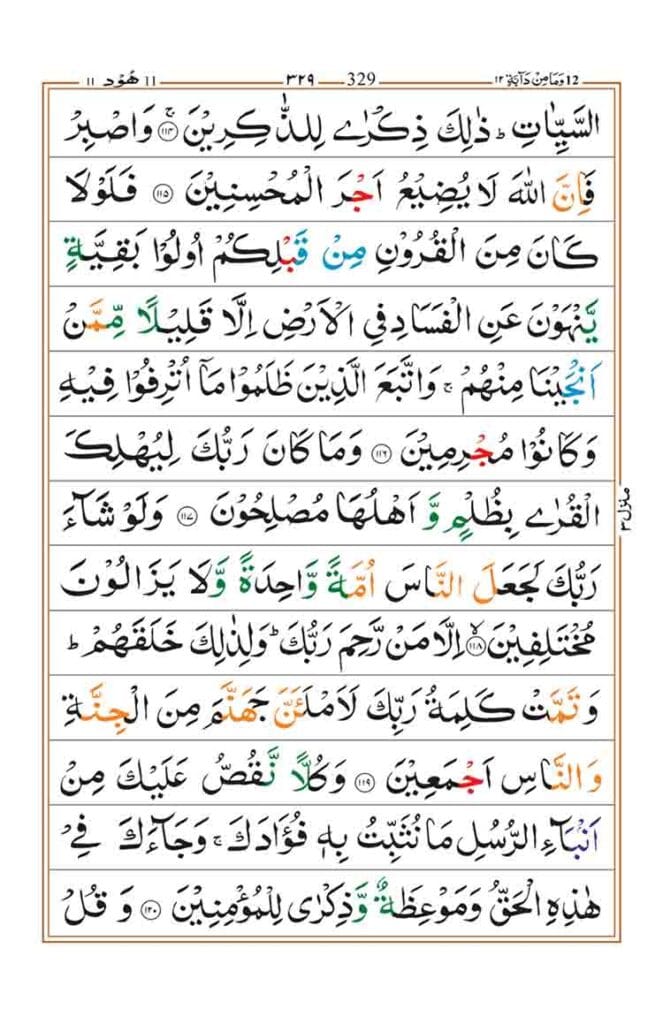 12 وَمَا مِنْ دَآبَّةٍ ١٢ 329 ٣٢٩ 11 هُوْد ١١
السَّيِّاٰتِ ؕ ذٰلِكَ ذِكْرٰى لِلذّٰكِرِيْنَ ۚ ﴿۱۱۴﴾ وَاصْبِرْ
فَاِنَّ اللّٰهَ لَا يُضِيْعُ اَجْرَ الْمُحْسِنِيْنَ ﴿۱۱۵﴾ فَلَوْلَا
كَانَ مِنَ الْقُرُوْنِ مِنْ قَبْلِكُمْ اُولُوْا بَقِيَّةٍ
يَّنْهَوْنَ عَنِ الْفَسَادِ فِى الْاَرْضِ اِلَّا قَلِيْلًا مِّمَّنْ
اَنْجَيْنَا مِنْهُمْ ۚ وَاتَّبَعَ الَّذِيْنَ ظَلَمُوْا مَاۤ اُتْرِفُوْا فِيْهِ
وَكَانُوْا مُجْرِمِيْنَ ﴿۱۱۶﴾ وَمَا كَانَ رَبُّكَ لِيُهْلِكَ
الْقُرٰى بِظُلْمٍ وَّ اَهْلُهَا مُصْلِحُوْنَ ﴿۱۱۷﴾ وَلَوْ شَآءَ
رَبُّكَ لَجَعَلَ النَّاسَ اُمَّةً وَّاحِدَةً وَّلَا يَزَالُوْنَ
مُخْتَلِفِيْنَ ۙ ﴿۱۱۸﴾ اِلَّا مَنْ رَّحِمَ رَبُّكَ ؕ وَلِذٰلِكَ خَلَقَهُمْ ؕ
وَ تَمَّتْ كَلِمَةُ رَبِّكَ لَاَمْلَـئَنَّ جَهَنَّمَ مِنَ الْجِنَّةِ
وَالنَّاسِ اَجْمَعِيْنَ ﴿۱۱۹﴾ وَكُلًّا نَّقُصُّ عَلَيْكَ مِنْ
اَنْۢبَآءِ الرُّسُلِ مَا نُثَبِّتُ بِهٖ فُؤَادَكَ ۚ وَجَآءَكَ فِىْ
هٰذِهِ الْحَقُّ وَمَوْعِظَةٌ وَّذِكْرٰى لِلْمُؤْمِنِيْنَ ﴿۱۲۰﴾ وَ قُلْ
منزل ٣